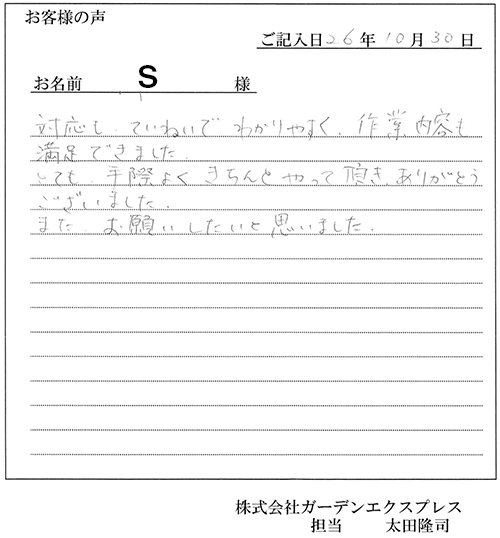 お客様の声
ご記入日26年10月30日
お名前 S 様
対応も、ていねいで わかりやすく、作業内容も
満足できました。
とても、手際よく きちんと やって頂き、ありがとう
ございました。
また、お願いしたいと思いました。
株式会社ガーデンエクスプレス
担当 太田隆司